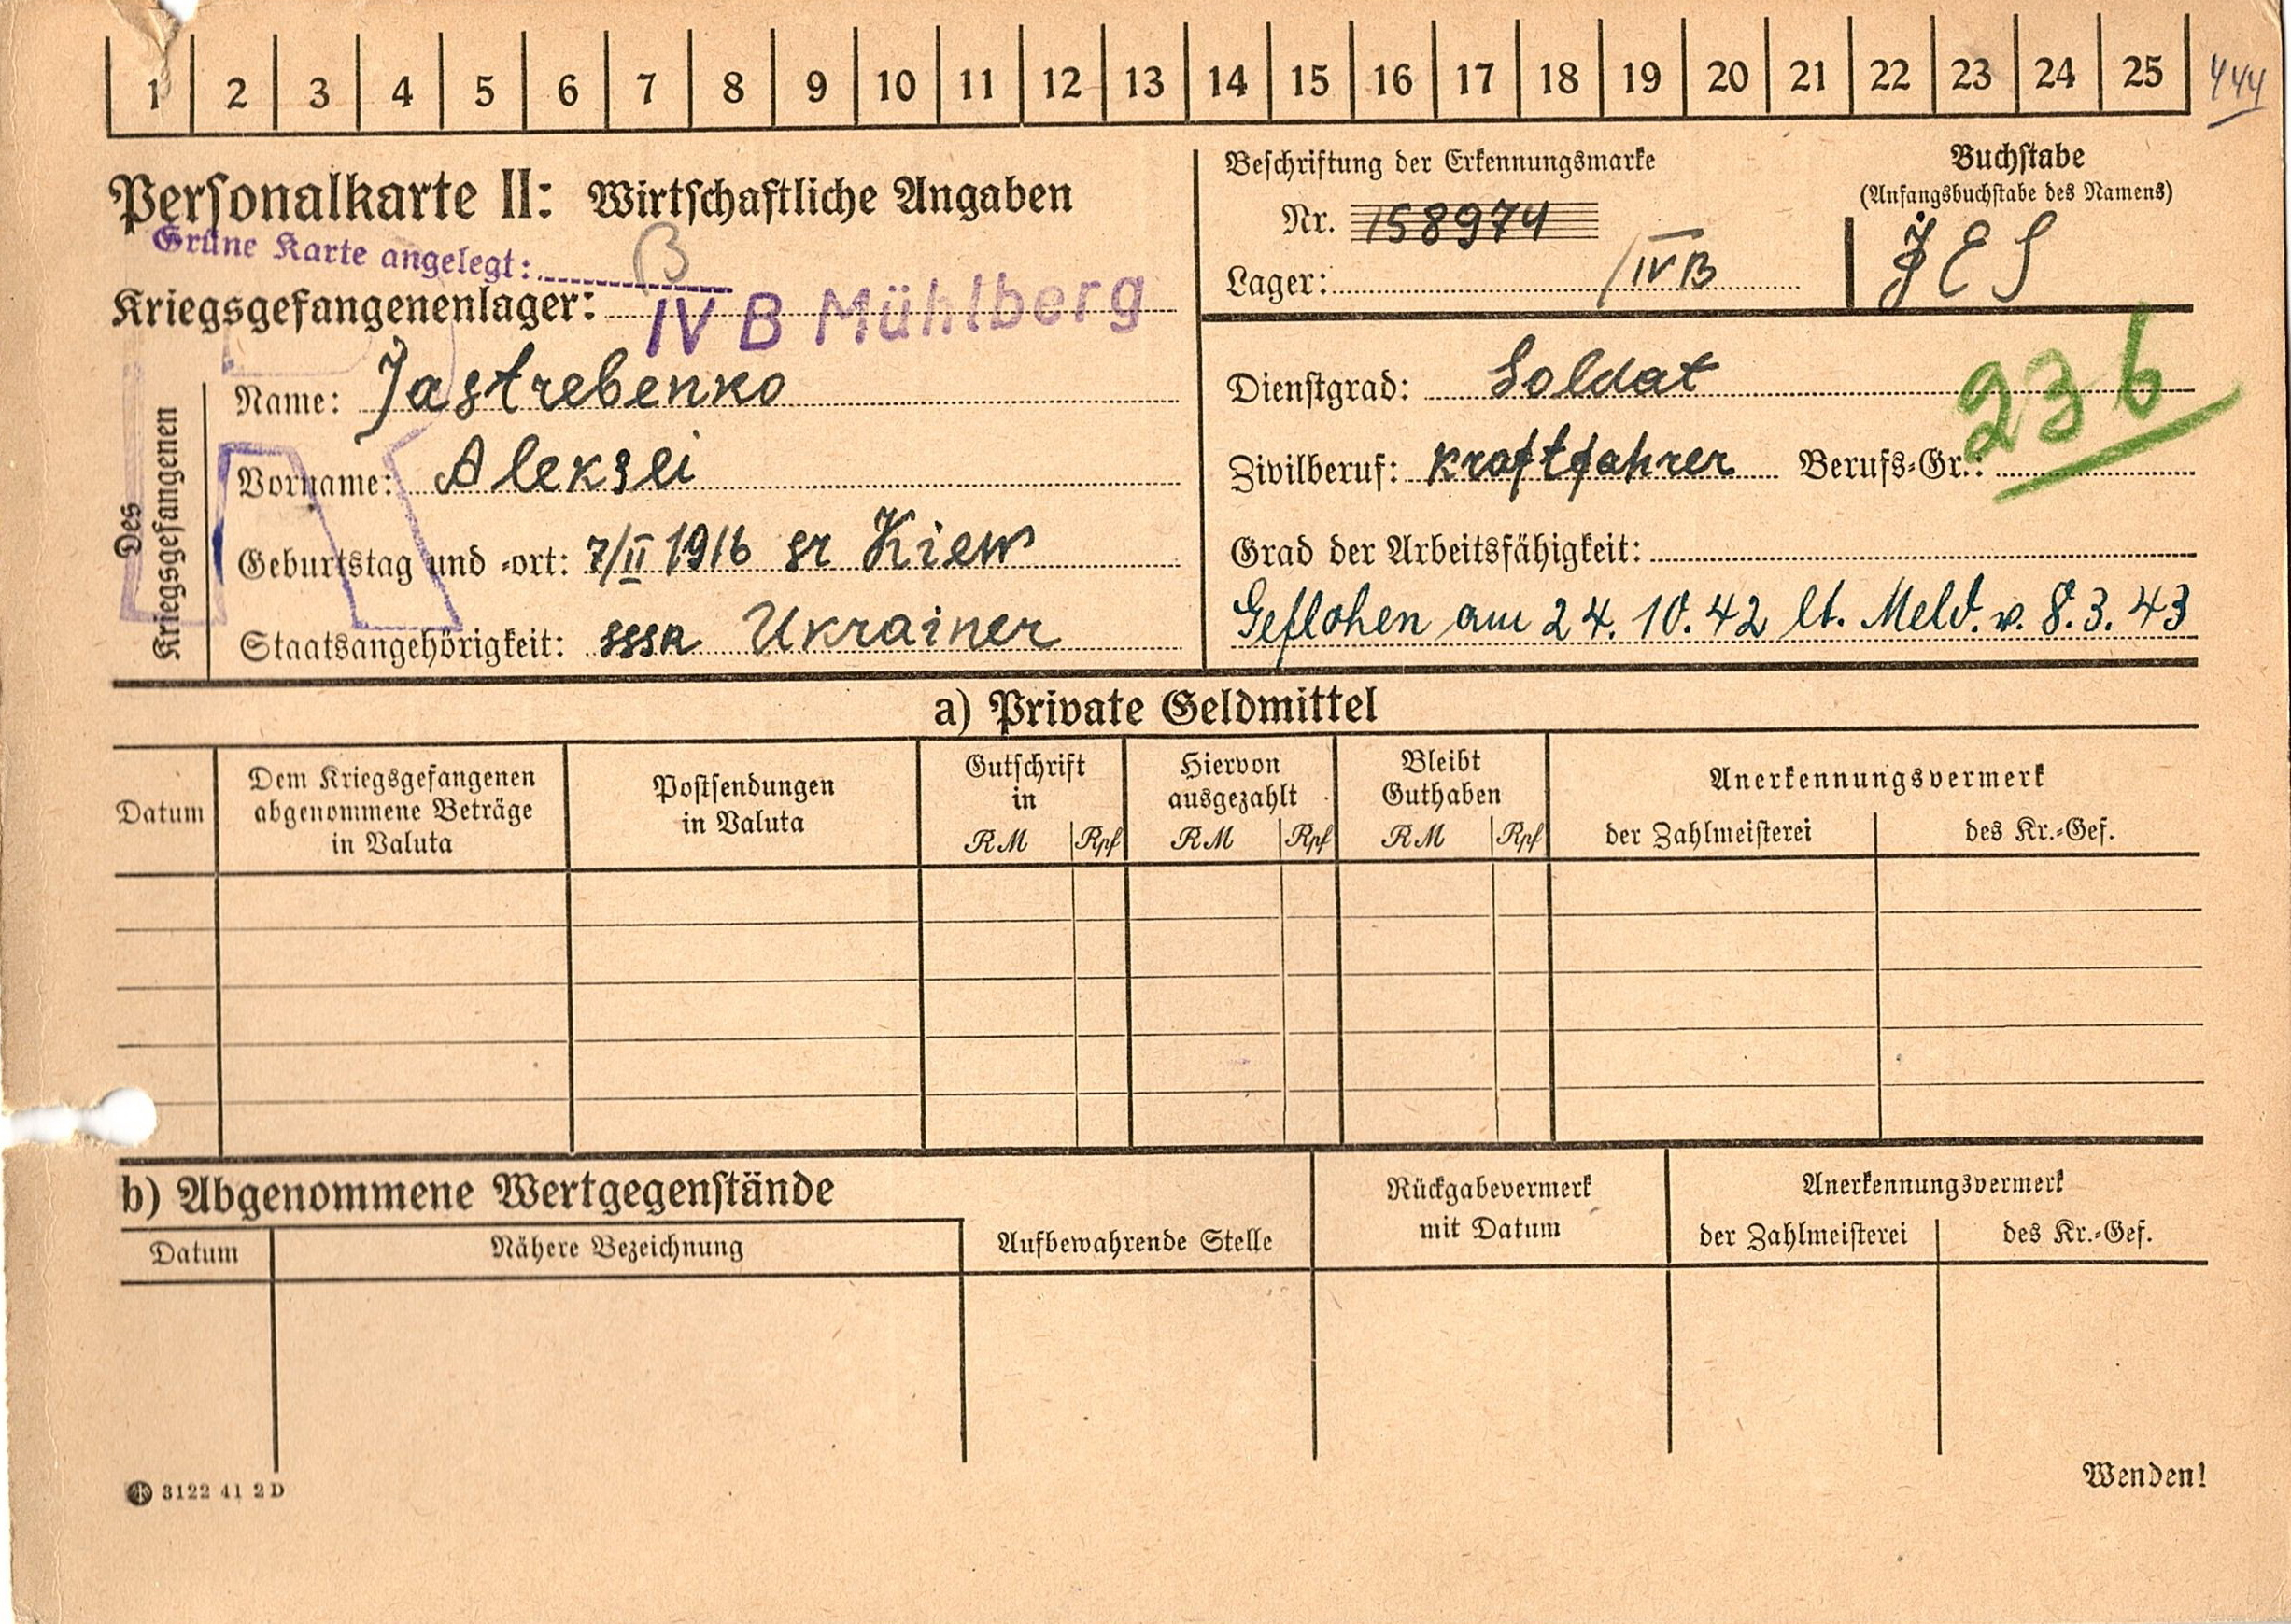 1 2 3 4 5 6 7 8 9 10 11 12 13 14 15 16 17 18 19 20 21 22 23 24 25 444
Personalkarte II: Wirtschaftliche Angaben
Grüne Karte angelegt: B
Kriegsgefangenenlager: IV B Mühlberg
Beschriftung der Erkennungsmarke
Nr. 158974
Lager: IV B
Buchstabe
(Anfangsbuchstabe des Namens)
Des Kriegsgefangenen
Name: Jastrebenko
Vorname: Aleksei
Geburtstag und -ort: 7/II 1916 gr Kiew
Staatsangehörigkeit: SSSR Ukrainer
Dienstgrad: Soldat
236
Zivilberuf: Kraftfahrer Berufs-Gr.:
Grad der Arbeitsfähigkeit:
Geflohen am 24.10.42 lt. Meld. v. 8.3.43
a) Private Geldmittel
Datum
Dem Kriegsgefangenen
abgenommene Beträge
in Valuta
Postsendungen
in Valuta
Gutschrift
in
RM Rpf
Hiervon
ausgezahlt
RM Rpf
Bleibt
Guthaben
RM Rpf
Anerkennungsvermerk
der Zahlmeisterei des Kr.-Gef.
b) Abgenommene Wertgegenstände
Datum Nähere Bezeichnung
Aufbewahrende Stelle
Rückgabevermerk
mit Datum
Anerkennungsvermerk
der Zahlmeisterei des Kr.-Gef.
3122 41 2 D
Wenden!